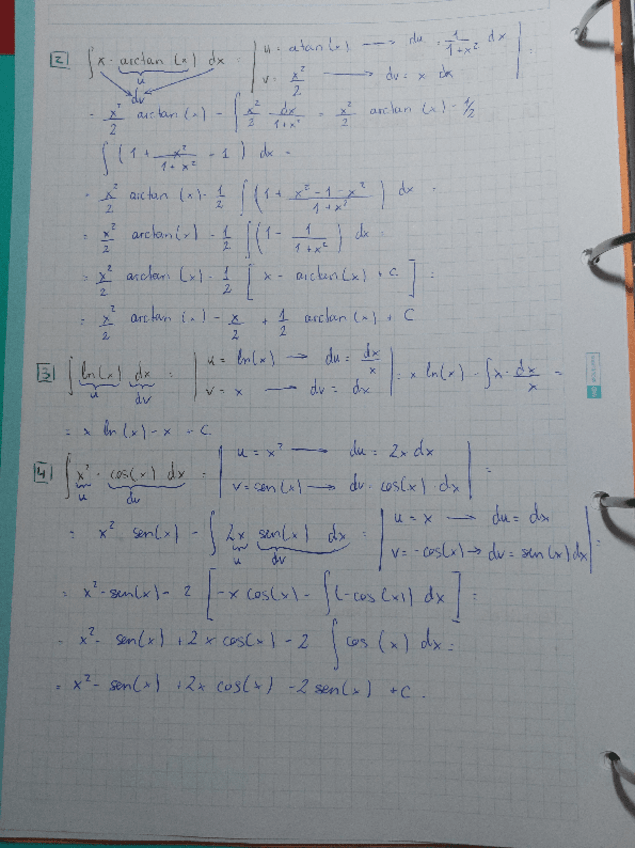 2) ∫ x · arctan (x) dx = | u = atan(x) → du = 1/(1+x²) dx | =
u
| v = x²/2 → dv = x dx |
dv
= x²/2 arctan (x) - ∫ x²/2 dx/(1+x²) = x²/2 arctan (x) - 1/2
∫ (1 + x²/(1+x²) - 1) dx =
= x²/2 arctan (x) - 1/2 ∫ (1 + (x²-1-x²)/(1+x²)) dx =
= x²/2 arctan(x) - 1/2 ∫ (1 - 1/(1+x²)) dx =
= x²/2 arctan (x) - 1/2 [ x - arctan(x) + C ] =
= x²/2 arctan (x) - x/2 + 1/2 arctan (x) + C
3) ∫ ln(x) dx = | u = ln(x) → du = dx/x | = x ln(x) - ∫ x · dx/x =
u dv | v = x → dv = dx |
= x ln(x) - x + C
4) ∫ x² · cos(x) dx = | u = x² → du = 2x dx | =
u dv | v = sen(x) → dv = cos(x) · dx |
= x² sen(x) - ∫ 2x sen(x) dx = | u = x → du = dx | =
u dv | v = -cos(x) → dv = sen(x) dx |
= x² - sen(x) - 2 [ -x cos(x) - ∫ (-cos (x)) dx ] =
= x² - sen(x) + 2x cos(x) - 2 ∫ cos (x) dx =
= x² - sen(x) + 2x cos(x) - 2 sen(x) + C.